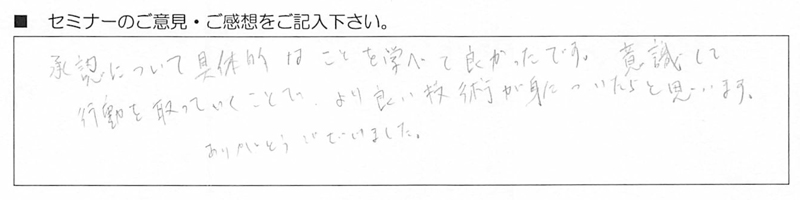 ■ セミナーのご意見・ご感想をご記入下さい。
承認について具体的なことを学べて良かったです。意識して
行動を取っていくことで、より良い技術が身についたらと思います。
ありがとうございました。